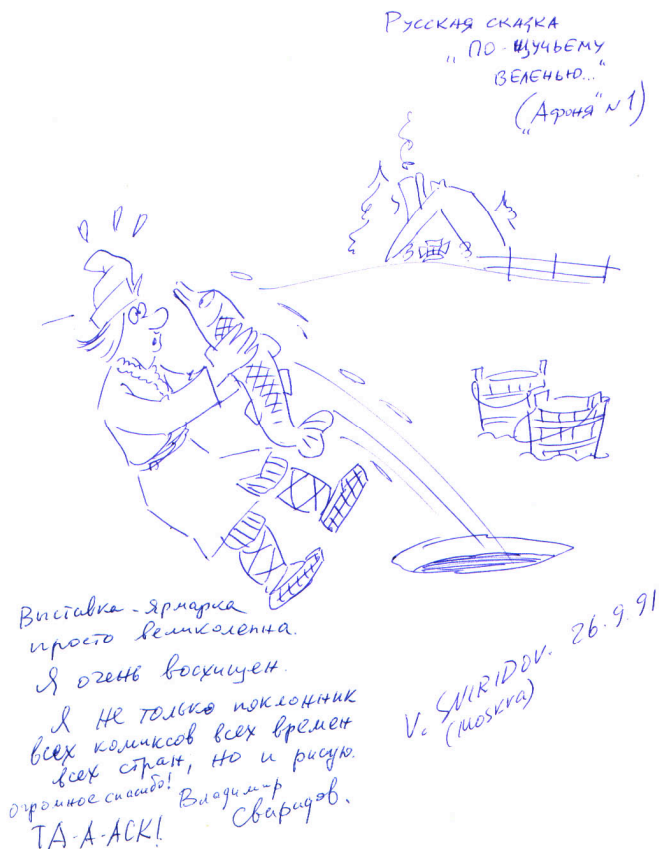 Русская сказка
„ПО-ЩУЧЬЕМУ
ВЕЛЕНЬЮ..."
(„Афоня" N 1)
Выставка-ярмарка
просто великолепна.
Я очень восхищен.
Я не только поклонник
всех комиксов всех времен
всех стран, но и рисую.
огромное спасибо! Владимир
ТА-А-АСК! Свиридов.
V. SVIRIDOV. 26.9.91
(MOSKVA)